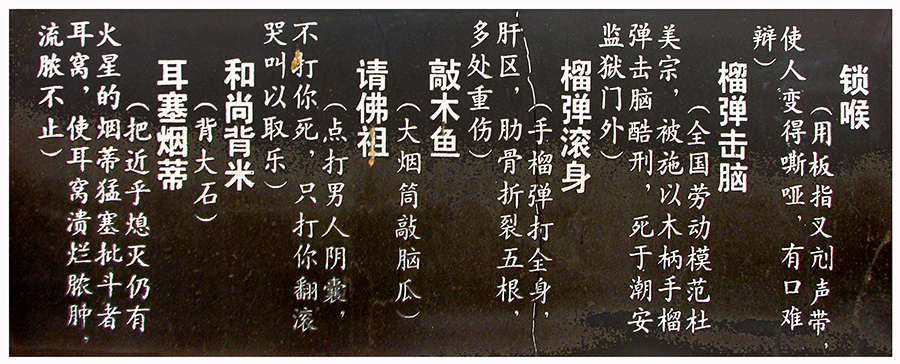 锁喉
(用板指叉刣声带,
使人变得嘶哑,有口难
辩)
榴弹击脑
(全国劳动模范杜
美宗,被施以木柄手榴
弹击脑酷刑,死于潮安
监狱门外)
榴弹滚身
(手榴弹打全身,
肝区,肋骨折裂五根,
多处重伤)
敲木鱼
(大烟筒敲脑瓜)
请佛祖
(点打男人阴囊,
不打你死,只打你翻滚
哭叫以取乐)
和尚背米
(背大石)
耳塞烟蒂
(把近乎熄灭仍有
火星的烟蒂猛塞批斗者
耳窝,使耳窝溃烂脓肿,
流脓不止)